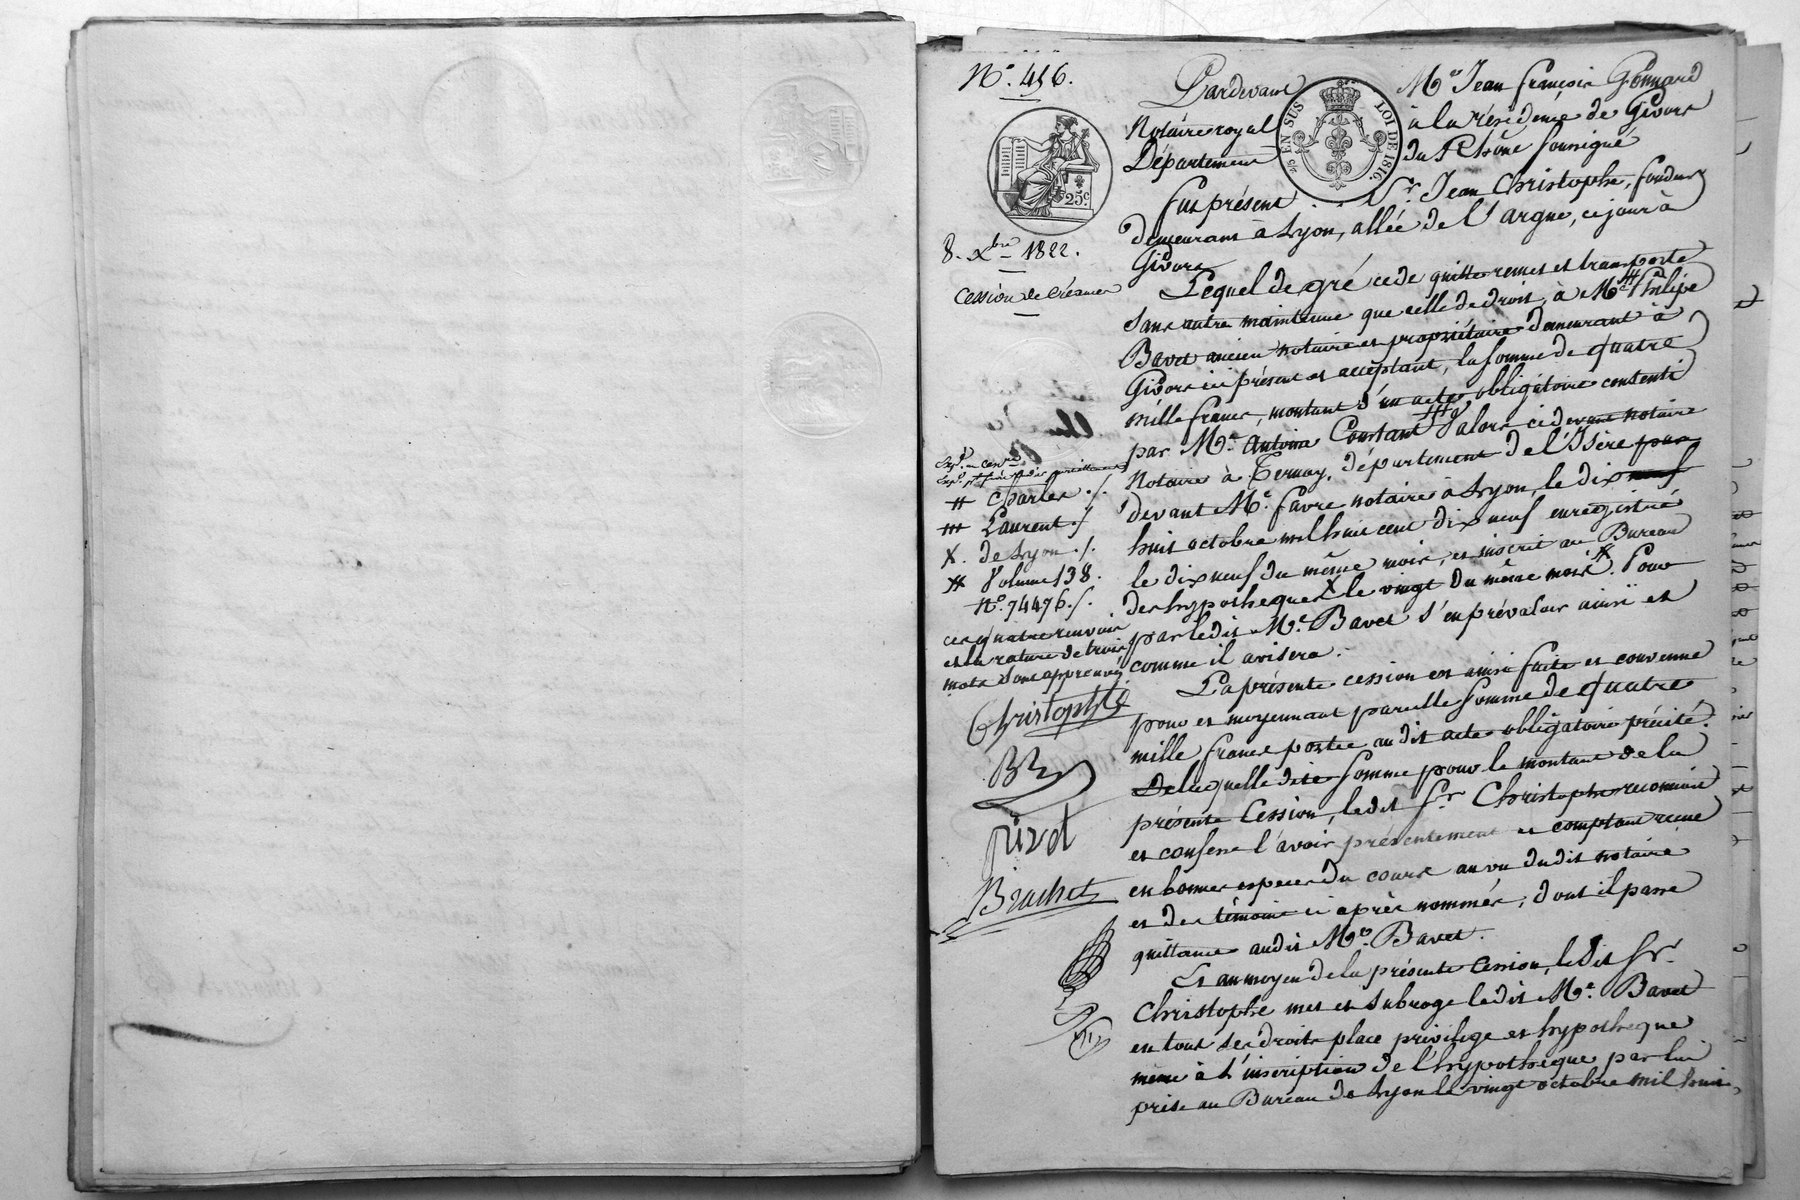 N.° 456.
25 EN SUS
LOI DE 1816.
25.c
8. Xbre 1822.
Cession de Créances
Pardevant Me Jean François Gonnard
Notaire royal à la résidence de Givors
Département du Rhône soussigné
fut présent Sr. Jean Christophe, fondeur
demeurant à Lyon, allée de l'argue, ce jour à
Givors
Lequel de gré cede quitte remet et transporte
sans autre maintenue que celle de droit, à Me # Philipe
Bavet ancien notaire et propriétaire demeurant à
Givors ici présent et acceptant, la somme de quatre
mille francs, montant d'un acte obligatoire consenti
par Me. Antoine Constant ## alors cidevant notaire
Notaire à Ternay, département de l'Isère pour
devant Me. favre notaire à Lyon, le dix neuf
huit octobre mil huit cent dix neuf enregistré
le dix neuf du même mois, et inscrit au Bureau
des hypotheques X le vingt du même mois X. Pour
par ledit Me. Bavet s'en prévaloir ainsi et
comme il avisera.
# Charles ./.
## Laurent ./
X. de Lyon ./.
# Volume 138.
N.° 74476 ./.
ces quatre renvois
et la rature de trois
mots sont approuvés
Christophe
pivot
Brachet
La présente cession est ainsi faite et convenue
pour et moyennant pareille somme de quatre
mille francs portée au dit acte obligatoire précité.
De laquelle dite somme pour le montant de la
présente Cession, ledit Sr Christophe reconnoit
et confesse l'avoir présentement et comptant reçue
en bonnes especes du cours au vu dudit notaire
et des témoins ci après nommés, dont il passe
quittance audit Me. Bavet.
Et au moyen de la présente Cession, le dit Sr.
Christophe met et subroge ledit Me. Bavet
en tous ses droits place privilege et hypotheque
même à l'inscription de l'hypothèque par lui
prise au Bureau de Lyon le vingt octobre mil huit